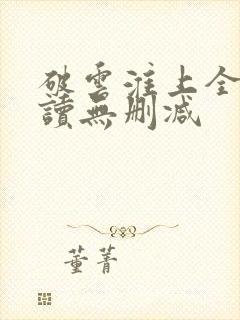 破雲淮上全
讀無刪減
董菁